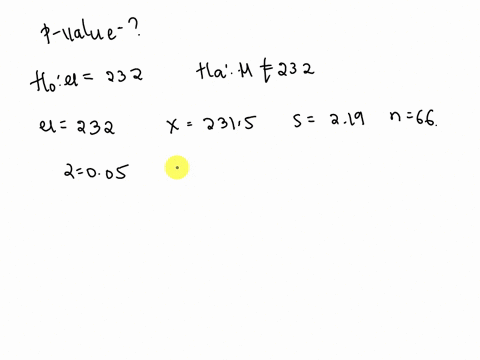 P-value-?
H₀: μ = 232 Ha: μ ≠ 232
μ = 232 x = 231.5 s = 2.19 n=66.
2=0.05